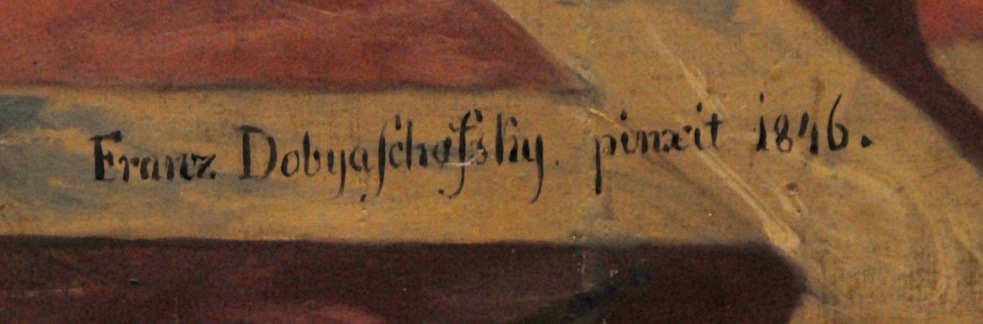 Franz Dobyaſchofsky pinxit 1846.